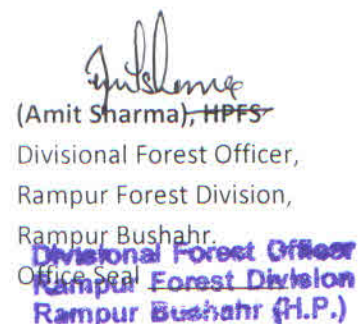 (Amit Sharma), HPFS
Divisional Forest Officer,
Rampur Forest Division,
Rampur Bushahr.
Divisional Forest Officer
Office Seal
Rampur Forest Division
Rampur Bushahr (H.P.)